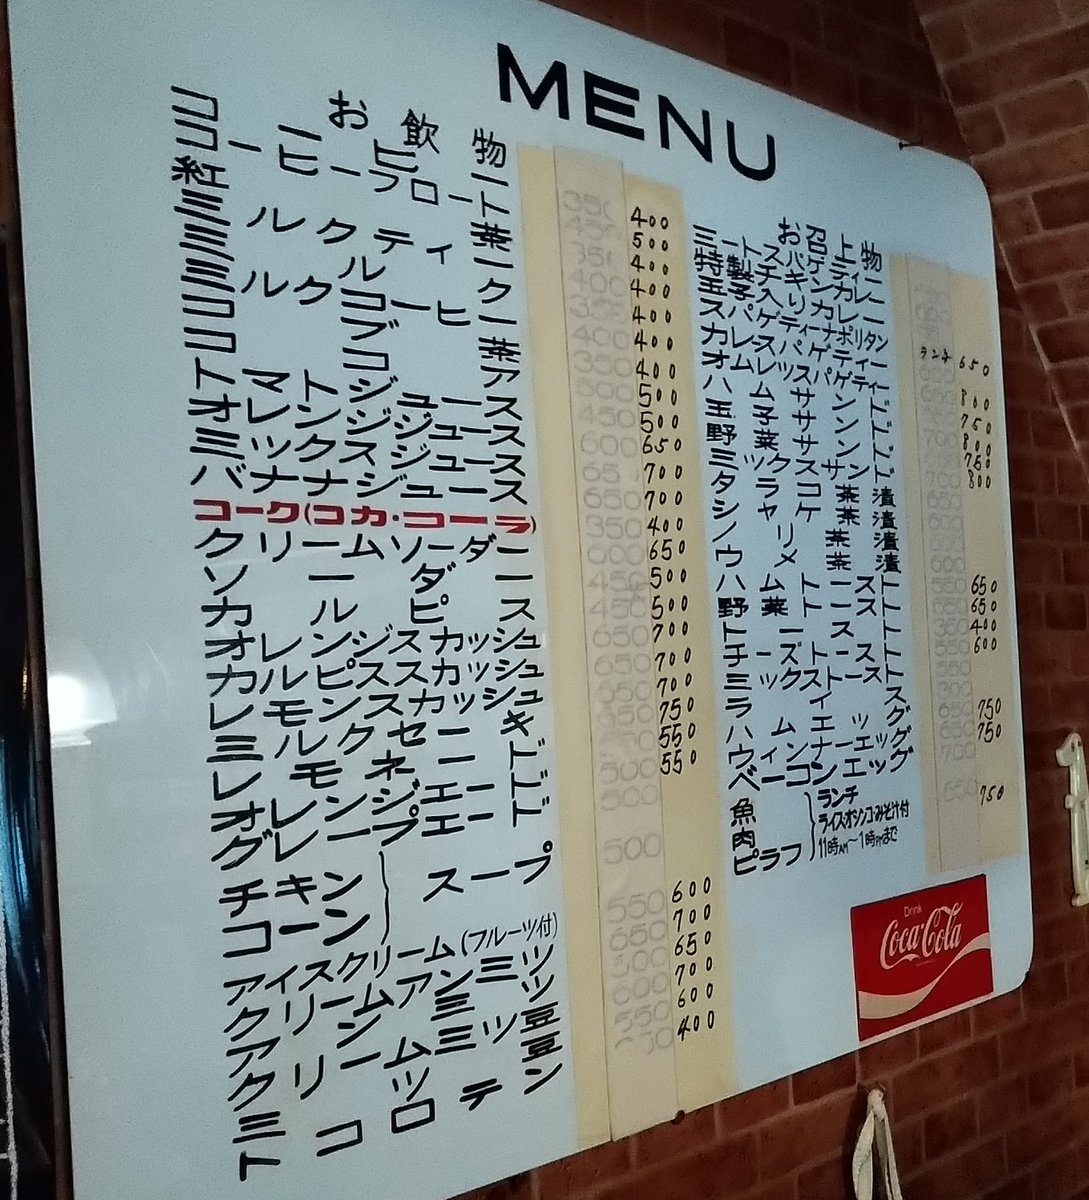 MENU
お飲物
コーヒー 400
コーヒーフロート 500
紅茶 400
ミルクティー 400
ミルク 400
ミルクコーヒー 400
コブ茶 400
ココア 500
トマトジュース 500
オレンジジュース 650
ミックスジュース 700
バナナジュース 700
コーク(コカ・コーラ) 400
クリームソーダー 650
ソーダー 500
カルピス 500
オレンジスカッシュ 700
カルピススカッシュ 700
レモンスカッシュ 700
ミルクセーキ 750
レモネード 550
オレンジエード 550
グレープエード
チキン
コーン
スープ 500
アイスクリーム(フルーツ付) 600
クリームアンミツ 700
アンミツ 650
クリームミツ豆 700
ミツ豆 600
トコロテン 400
お召上物
ミートスパゲティー
特製チキンカレー
玉子入りカレー
スパゲティーナポリタン
カレースパゲティー
オムレツスパゲティー
ハムサンド
玉子サンド
野菜サンド
ミックスサンド
タラコ茶漬
シャケ茶漬
ノリ茶漬
ウメ茶漬
ハムトースト
野菜トースト
トースト
チーズトースト
ミックストースト
ライス
ハムエッグ
ウィンナーエッグ
ベーコンエッグ
魚
肉
ピラフ
ランチ
ライス・オシンコ・みそ汁付
11時AM〜1時PMまで
ランチ 650
800
750
800
750
800
650
650
400
600
750
750
750
Drink
Coca-Cola